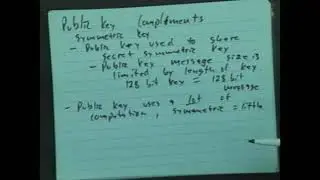 Public Key Complements
symmetric key
- Public key used to share
secret symmetric key
- Public key message size is
limited by length of key
128 bit key = 128 bit
message
- Public key uses a lot of
computation, symmetric = little